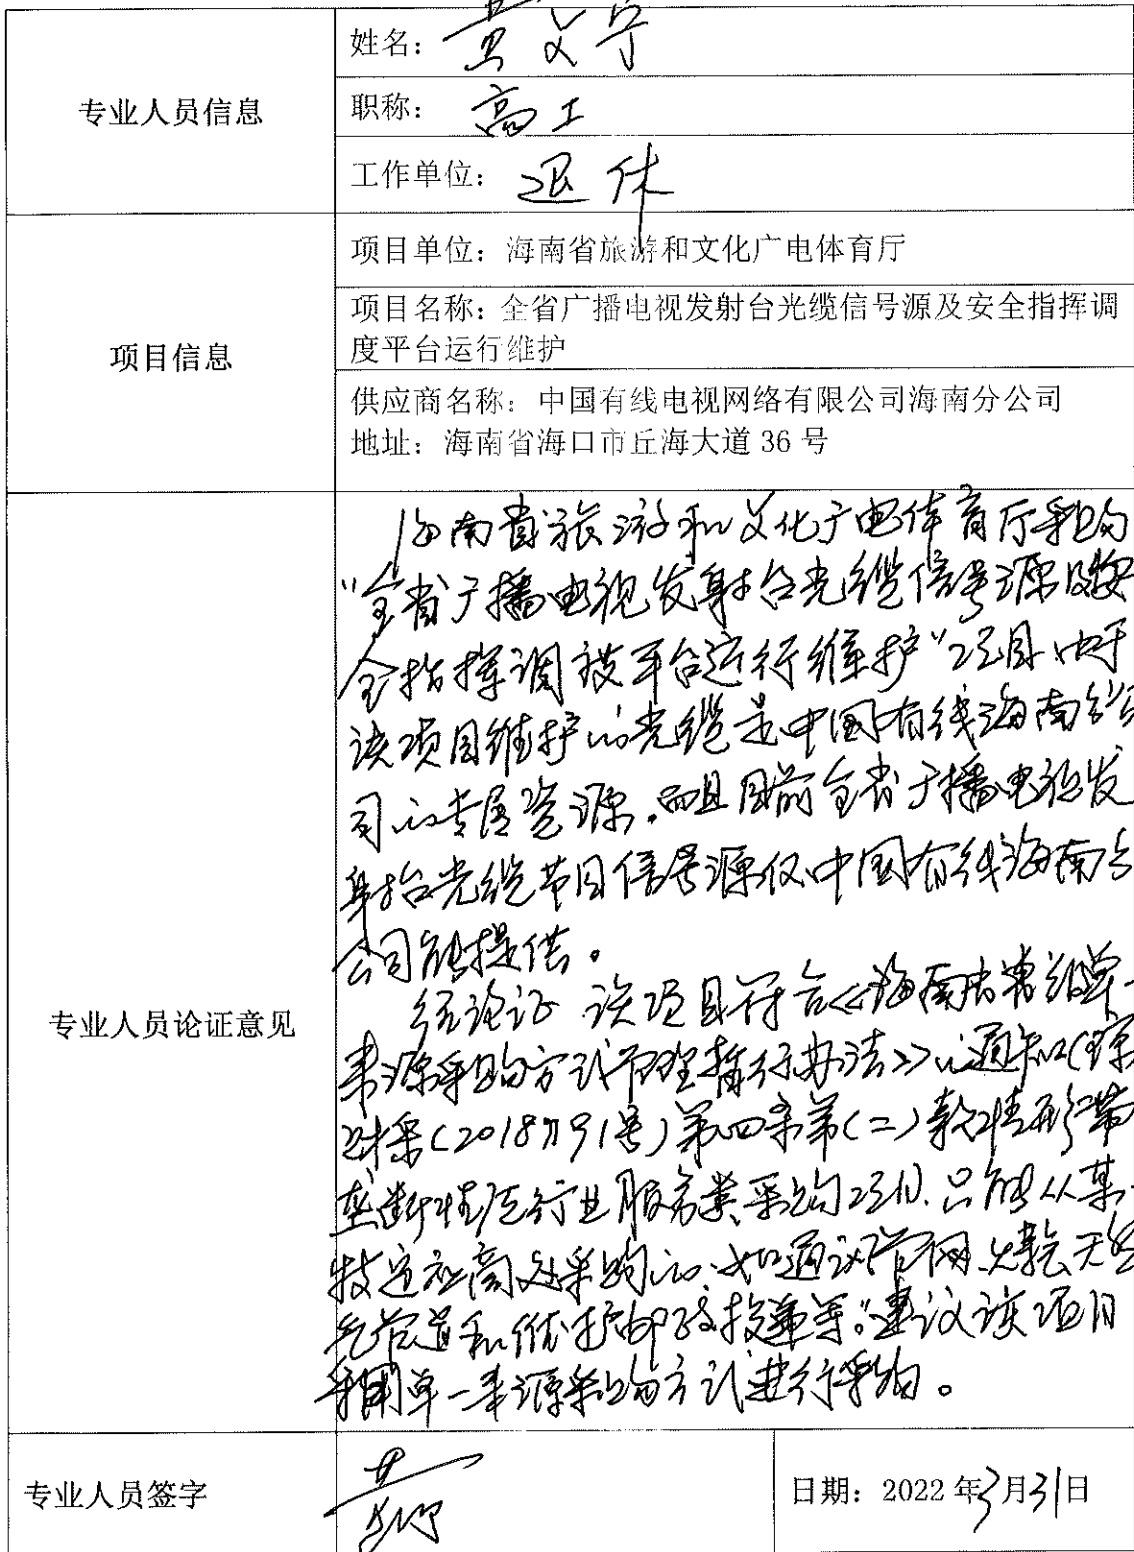 姓名：黄文宁
专业人员信息
职称：高工
工作单位：退休
项目单位：海南省旅游和文化广电体育厅
项目信息
项目名称：全省广播电视发射台光缆信号源及安全指挥调
度平台运行维护
供应商名称：中国有线电视网络有限公司海南分公司
地址：海南省海口市丘海大道 36 号
专业人员论证意见
海南省旅游和文化广电体育厅采购
“全省广播电视发射台光缆信号源及安
全指挥调度平台运行维护”项目，由于
该项目维护的光缆是中国有线海南分公
司的专属资源，而且目前全省广播电视发
射台光缆节目信号源仅中国有线海南分
公司能提供。
经论证，该项目符合《海南省省级单一
来源采购方式管理暂行办法》的通知（琼
财采〔2018〕791号）第四条第（二）款情形“带
垄断性
行业服务类采购项目，只能从某
特定
商处采购的，如通议管网
天然
气管道和
邮政投递等。”建议该项目
采用单一来源采购方式进行采购。
专业人员签字
黄
日期：2022 年3月31日